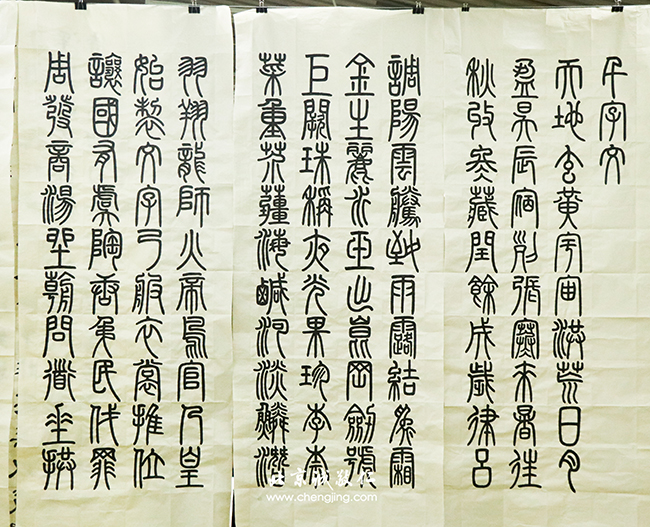 千字文
天地玄黃宇宙洪荒日月
盈昃辰宿列張寒來暑往
秋收冬藏閏餘成歲律呂
調陽雲騰致雨露結為霜
金生麗水玉出崑岡劍號
巨闕珠稱夜光果珍李柰
菜重芥薑海鹹河淡鱗潛
羽翔龍師火帝鳥官人皇
始製文字乃服衣裳推位
讓國有虞陶唐弔民伐罪
周發商湯坐朝問道垂拱
www.chengjing.com